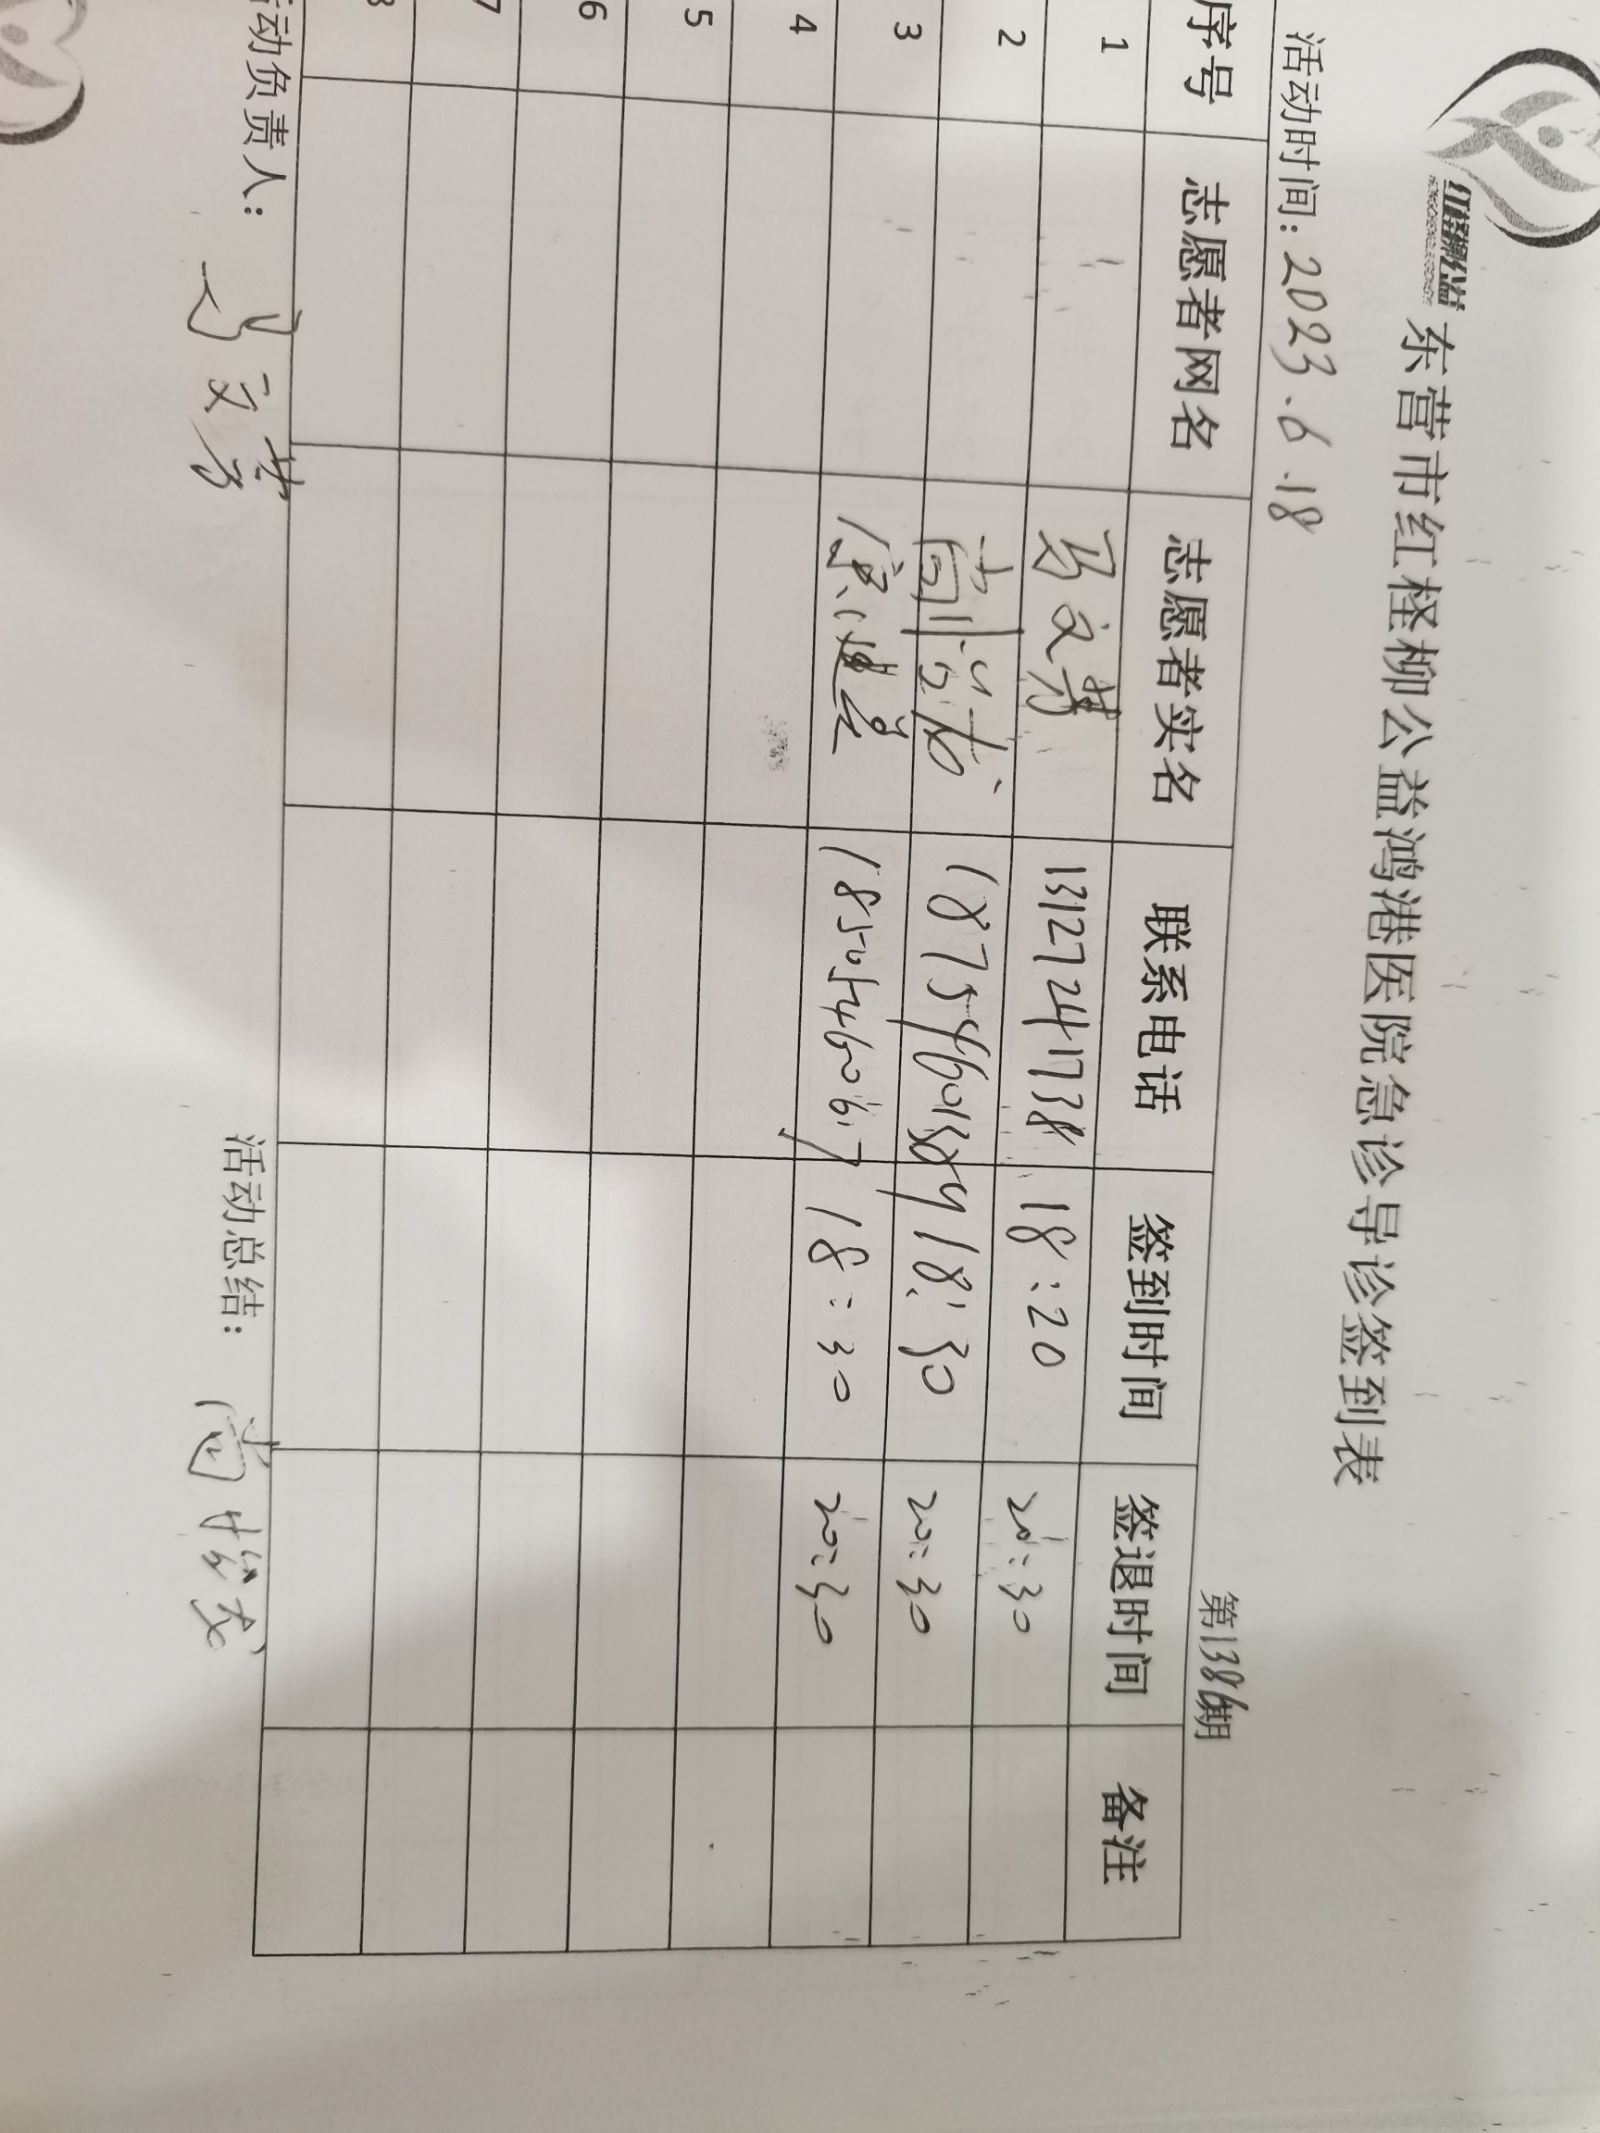 红柽柳公益
东营市红柽柳公益鸿港医院急诊导诊签到表
活动时间：2023.6.18
第1386期
序号 志愿者网名 志愿者实名 联系电话 签到时间 签退时间 备注
1 马文芳 13127241738 18:20 20:30
2 18754601389 18:30 20:30
3 18505460617 18:30 20:30
4
5
6
7
8
活动负责人：马文芳
活动总结：